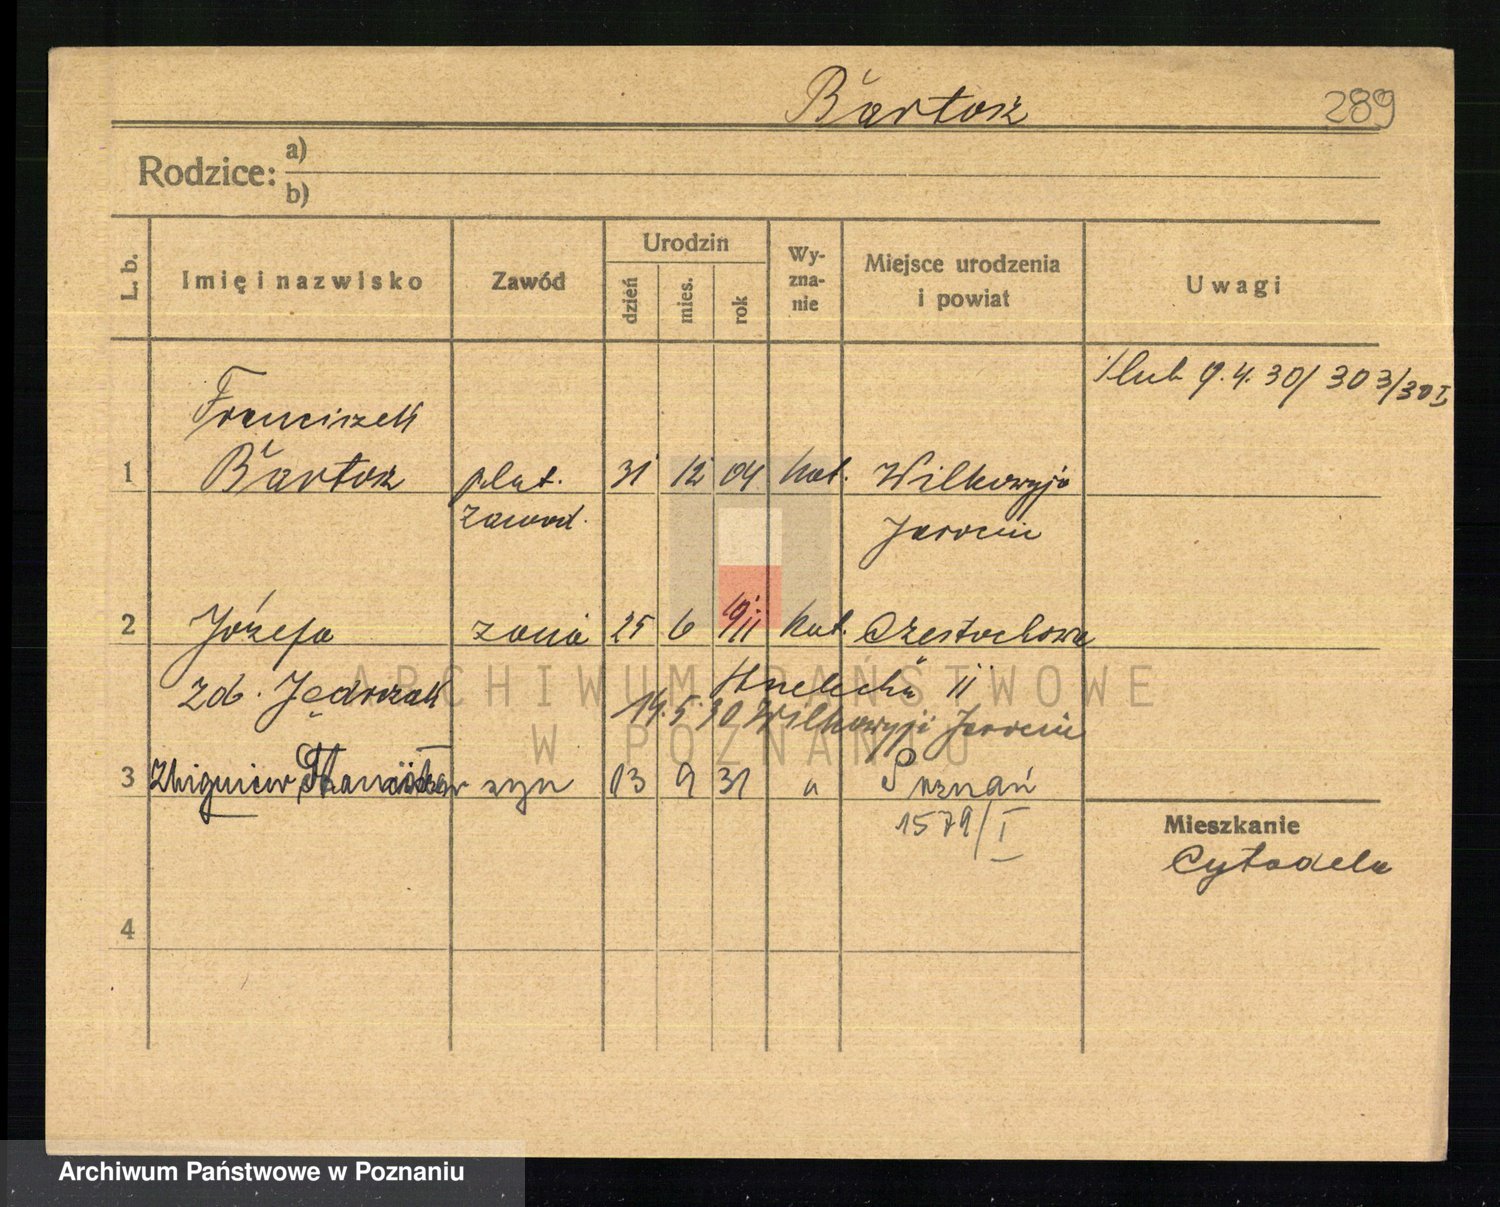 Bartosz 289
Rodzice: a)
b)
L. b. Imię i nazwisko Zawód Urodzin dzień mies. rok Wy-zna-nie Miejsce urodzenia i powiat Uwagi
ślub 9.4.30/ 303/30 I
Franciszek
1 Bartosz plut. 31 12 04 kat. Wilkowyja
zawod. Jarocin
2 Józefa żona 25 6 911 kat. Czestochowa
zd. Jędrzak II
14.5.30 Wilkowyji Jarocin
3 Zbigniew syn 13 9 31 " Poznań
1579/I
Mieszkanie
Cytadela
4
ARCHIWUM PAŃSTWOWE
W POZNANIU
Archiwum Państwowe w Poznaniu